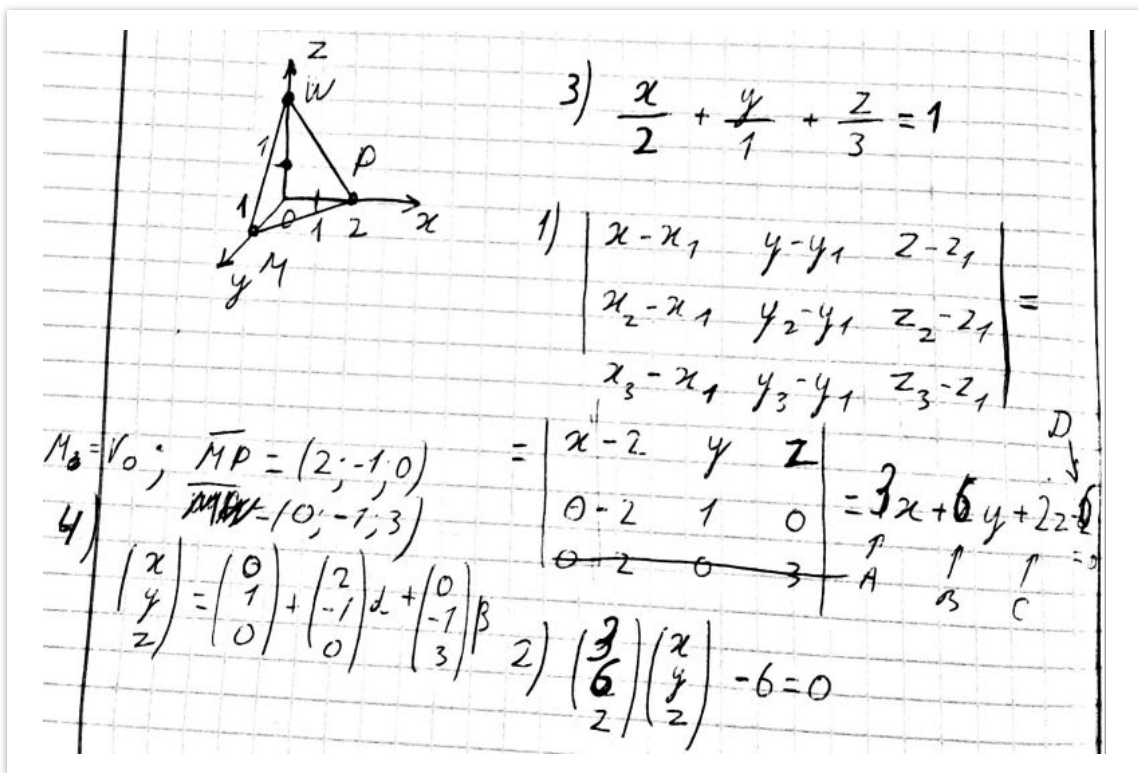 z
W
1
P
1
0
1
2
x
y
M
3) x/2 + y/1 + z/3 = 1
1) | x-x₁ y-y₁ z-z₁ |
| x₂-x₁ y₂-y₁ z₂-z₁ | =
| x₃-x₁ y₃-y₁ z₃-z₁ |
= | x-2 y z |
| 0-2 1 0 | = 3x+6y+2z-6
| 0-2 0 3 | =0
D
A B C
= r₀ ; MP = (2;-1;0)
= (0;-1;3)
4) (x y z) = (0 1 0) + (2 -1 0) α + (0 -1 3) β
2) (3 6 2) (x y z) -6=0